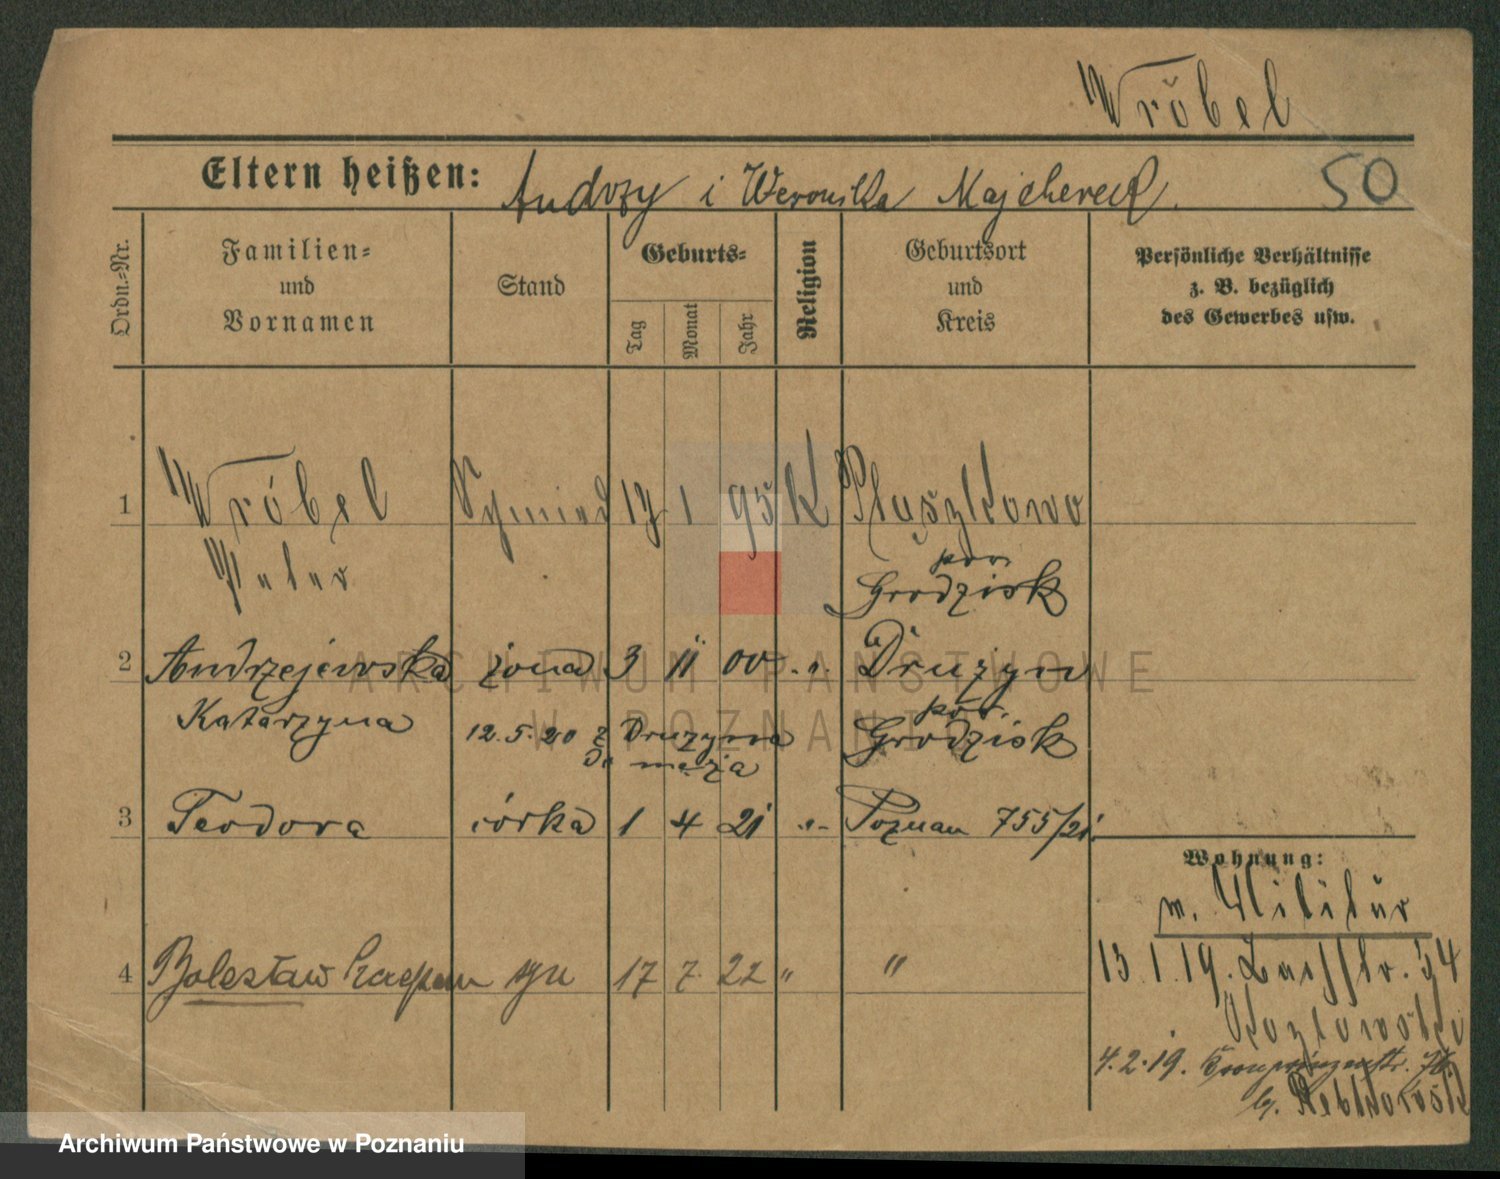 Wróbel
Eltern heißen: Andrzy i Weronika Majcherek.
50
Ordn.=Nr.
Familien=
und
Vornamen
Stand
Geburts=
Tag
Monat
Jahr
Religion
Geburtsort
und
Kreis
Persönliche Verhältnisse
z. B. bezüglich
des Gewerbes usw.
1 Wróbel Schmied 17 1 95 K Ptaszkowo
pow.
Grodzisk
2 Andrzejewska żona 3 11 00 " Drużyn
Katarzyna
pow.
Grodzisk
12.5.20 z Drużyna
do męża
3 Teodora córka 1 4 21 " Poznań 755/21.
4 Bolesław Szczepan syn 17 7. 22 " "
Wohnung:
v. Militär
13.1.19. 54
Kozłowski
4.2.19. Kronprinzenstr.
b.
ARCHIWUM PAŃSTWOWE
W POZNANIU
Archiwum Państwowe w Poznaniu